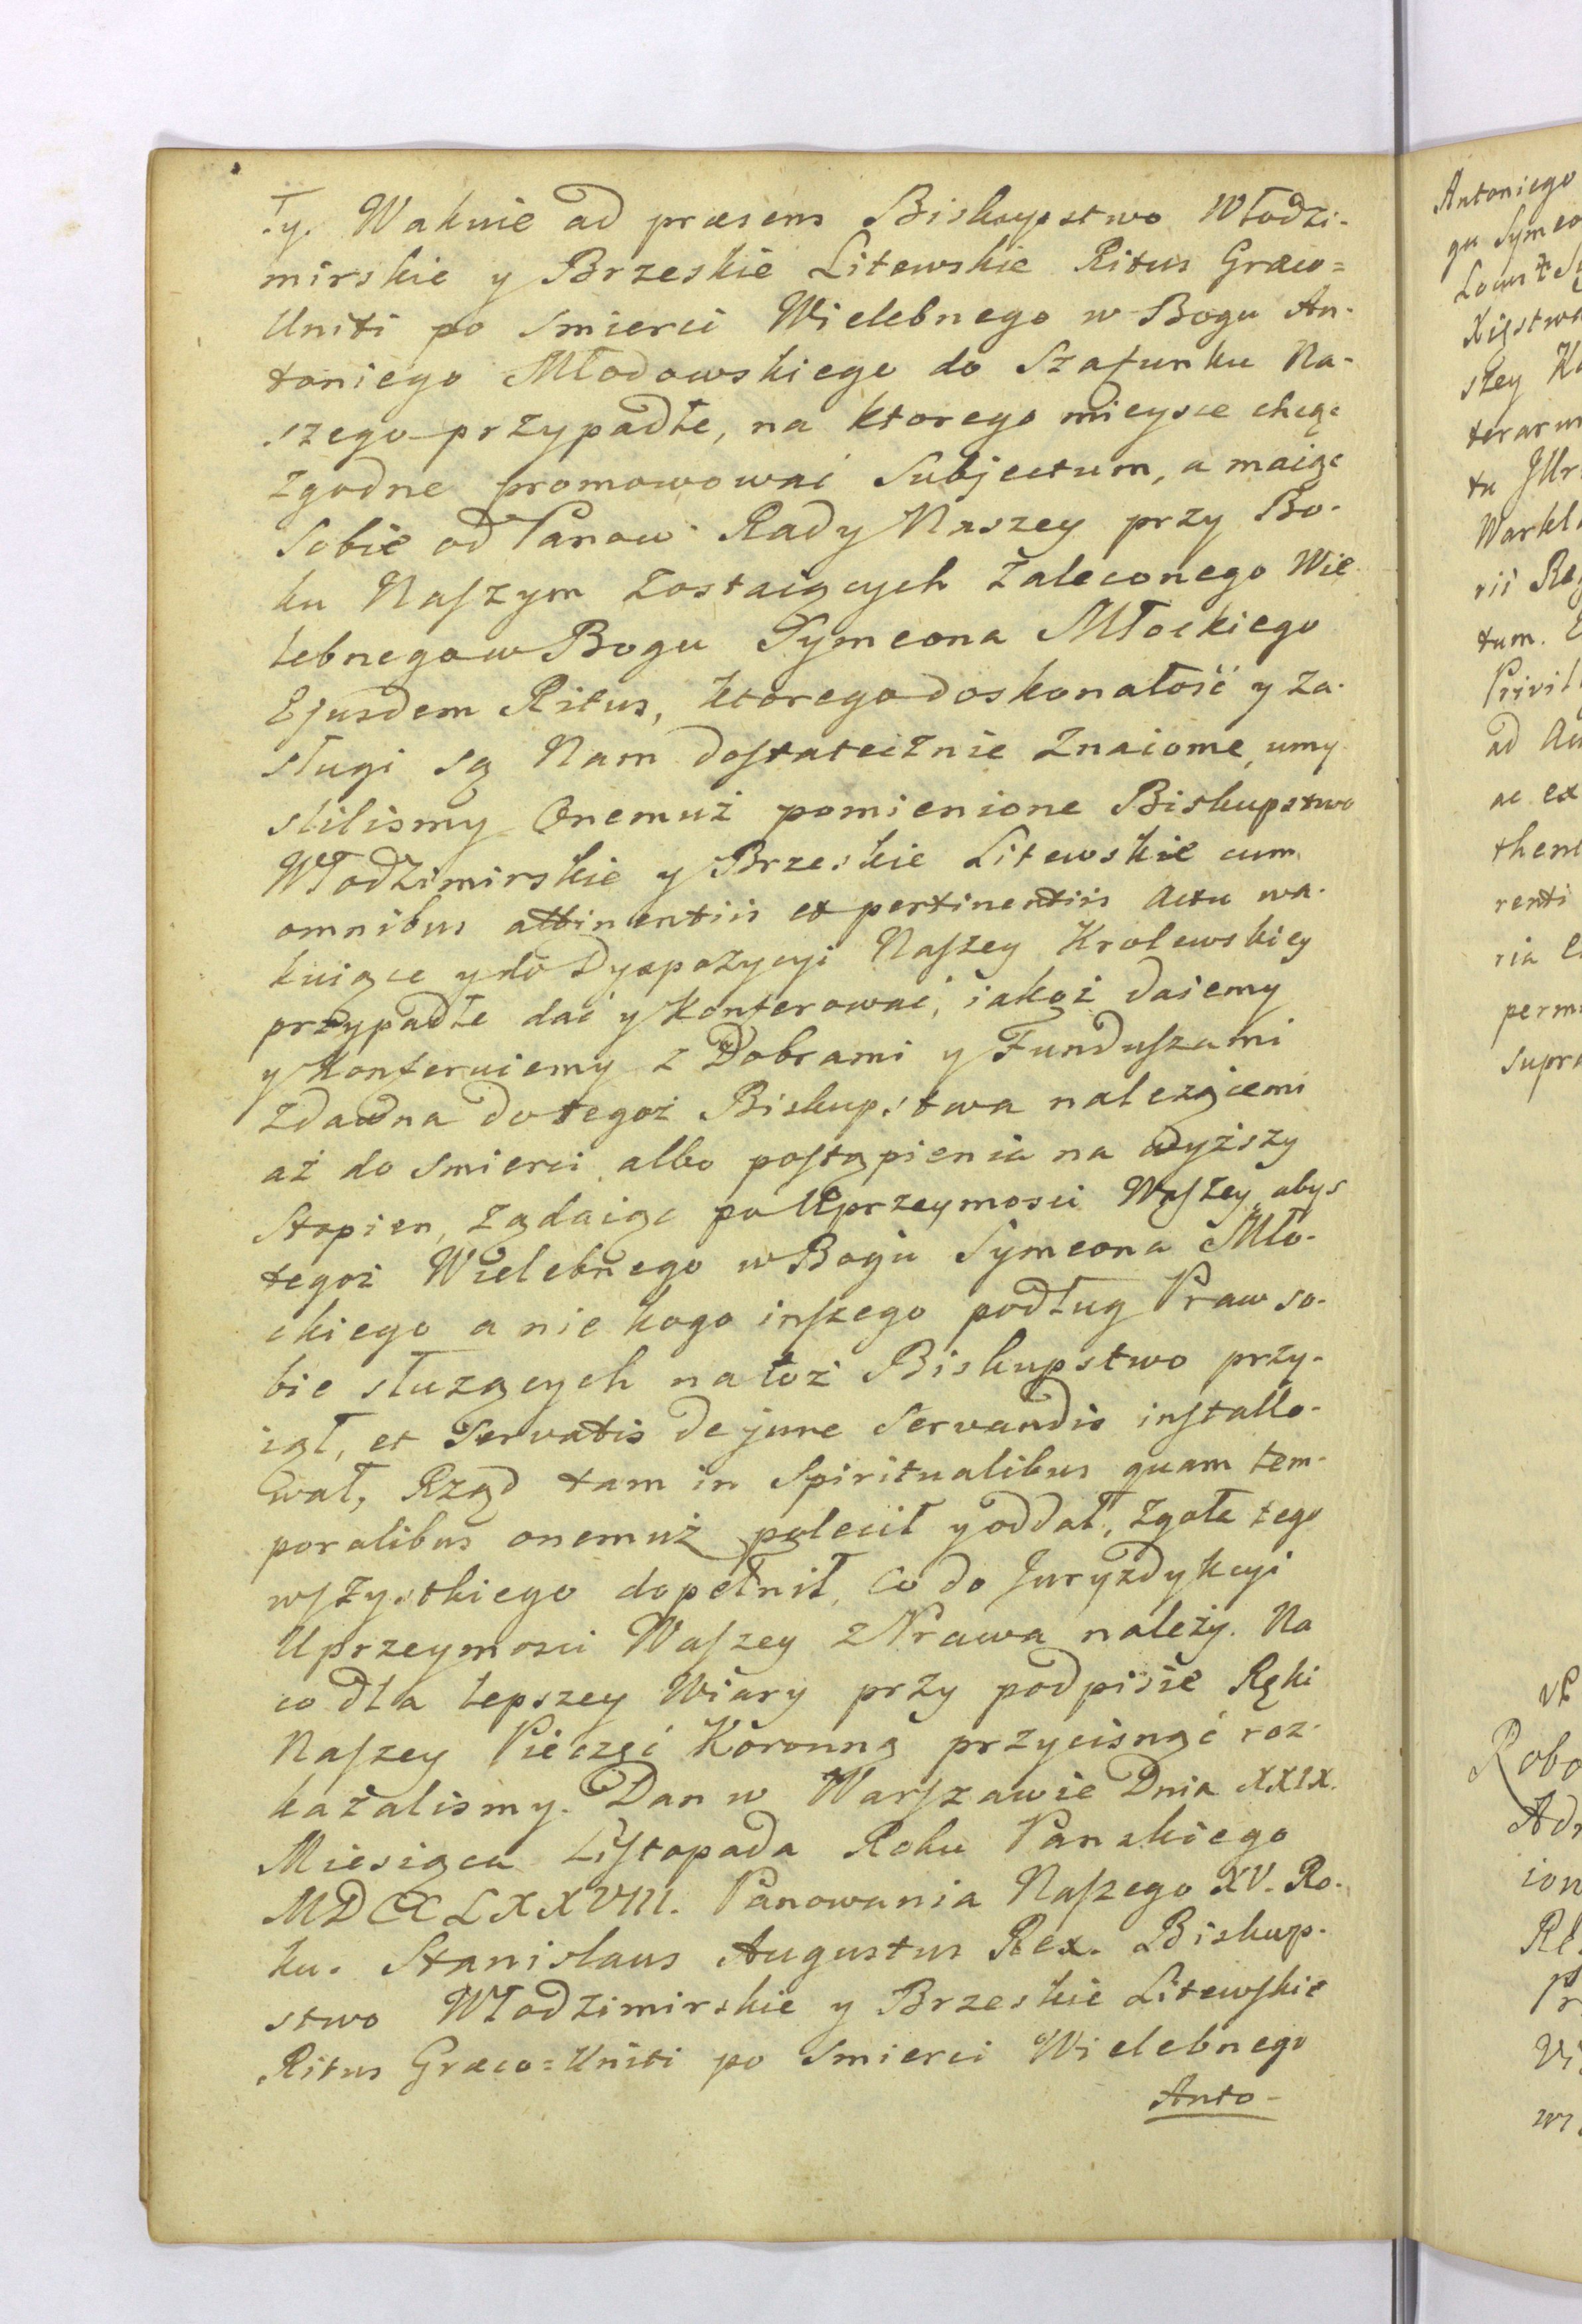 ły. Wakuie ad præsens Biskupstwo Włodzi-
mirskie y Brzeskie Litewskie Ritus Græco=
Uniti po Smierci Wielebnego w Bogu An-
toniego Młodowskiego do Szafunku Na-
szego przypadłe, na ktorego mieysce chcąc
zgodne promowować Subjectum, a maiąc
Sobie od Panow Rady Naszey przy Bo-
ku Naszym Zostaiących zaleconego Wie
lebnego w Bogu Symeona Młockiego
Ejusdem Ritus, ktorego doskonałość y za-
sługi są Nam dostatecznie znaiome, umy
slilismy Onemuż pomienione Biskupstwo
Włodzimirskie y Brzeskie Litewskie cum
omnibus attinentiis et pertinentiis Actu wa-
kuiące y do Dyspozycyi Naszey Krolewskiey
przypadłe dać y Konferować, iakoż daiemy
y Konferuiemy z Dobrami y Funduszami
zdawna do tegoż Biskupstwa należącemi
aż do smierci albo postąpienia na wyższy
Stopien, żądaiąc po Uprzeymosci Waszey, abys
tegoż Wielebnego w Bogu Symeona Mło-
ckiego a nie kogo inszego podług Praw so-
bie służących na toż Biskupstwo przy-
iął, et Servatis de jure Servandis installo-
wał, Rząd tam in Spiritualibus quam tem-
poralibus onemuż polecił y oddał, zgoła tego
wszystkiego dopełnił, co do Juryzdykcyi
Uprzeymosci Waszey z Prawa należy. Na
co dla lepszey Wiary przy podpisie Ręki
Naszey Pieczęć Koronną przycisnąć roz-
kazalismy. Dan w Warszawie Dnia XXIX.
Miesiąca Listopada Roku Panskiego
MDCCLXXVIII. Panowania Naszego XV. Ro-
ku. Stanislaus Augustus Rex. Biskup-
stwo Włodzimirskie y Brzeskie Litewskie
Ritus Græco=Uniti po Smierci Wielebnego
Anto-
Antoniego
gu Symeo
Xięstwa
szey Ko
terarum
tu Jllr.
Warkl
rii Re
tum. E
Privil
ad Au
ac ex
thent
renti
ria
perm
supra
Robo
Adr
ion